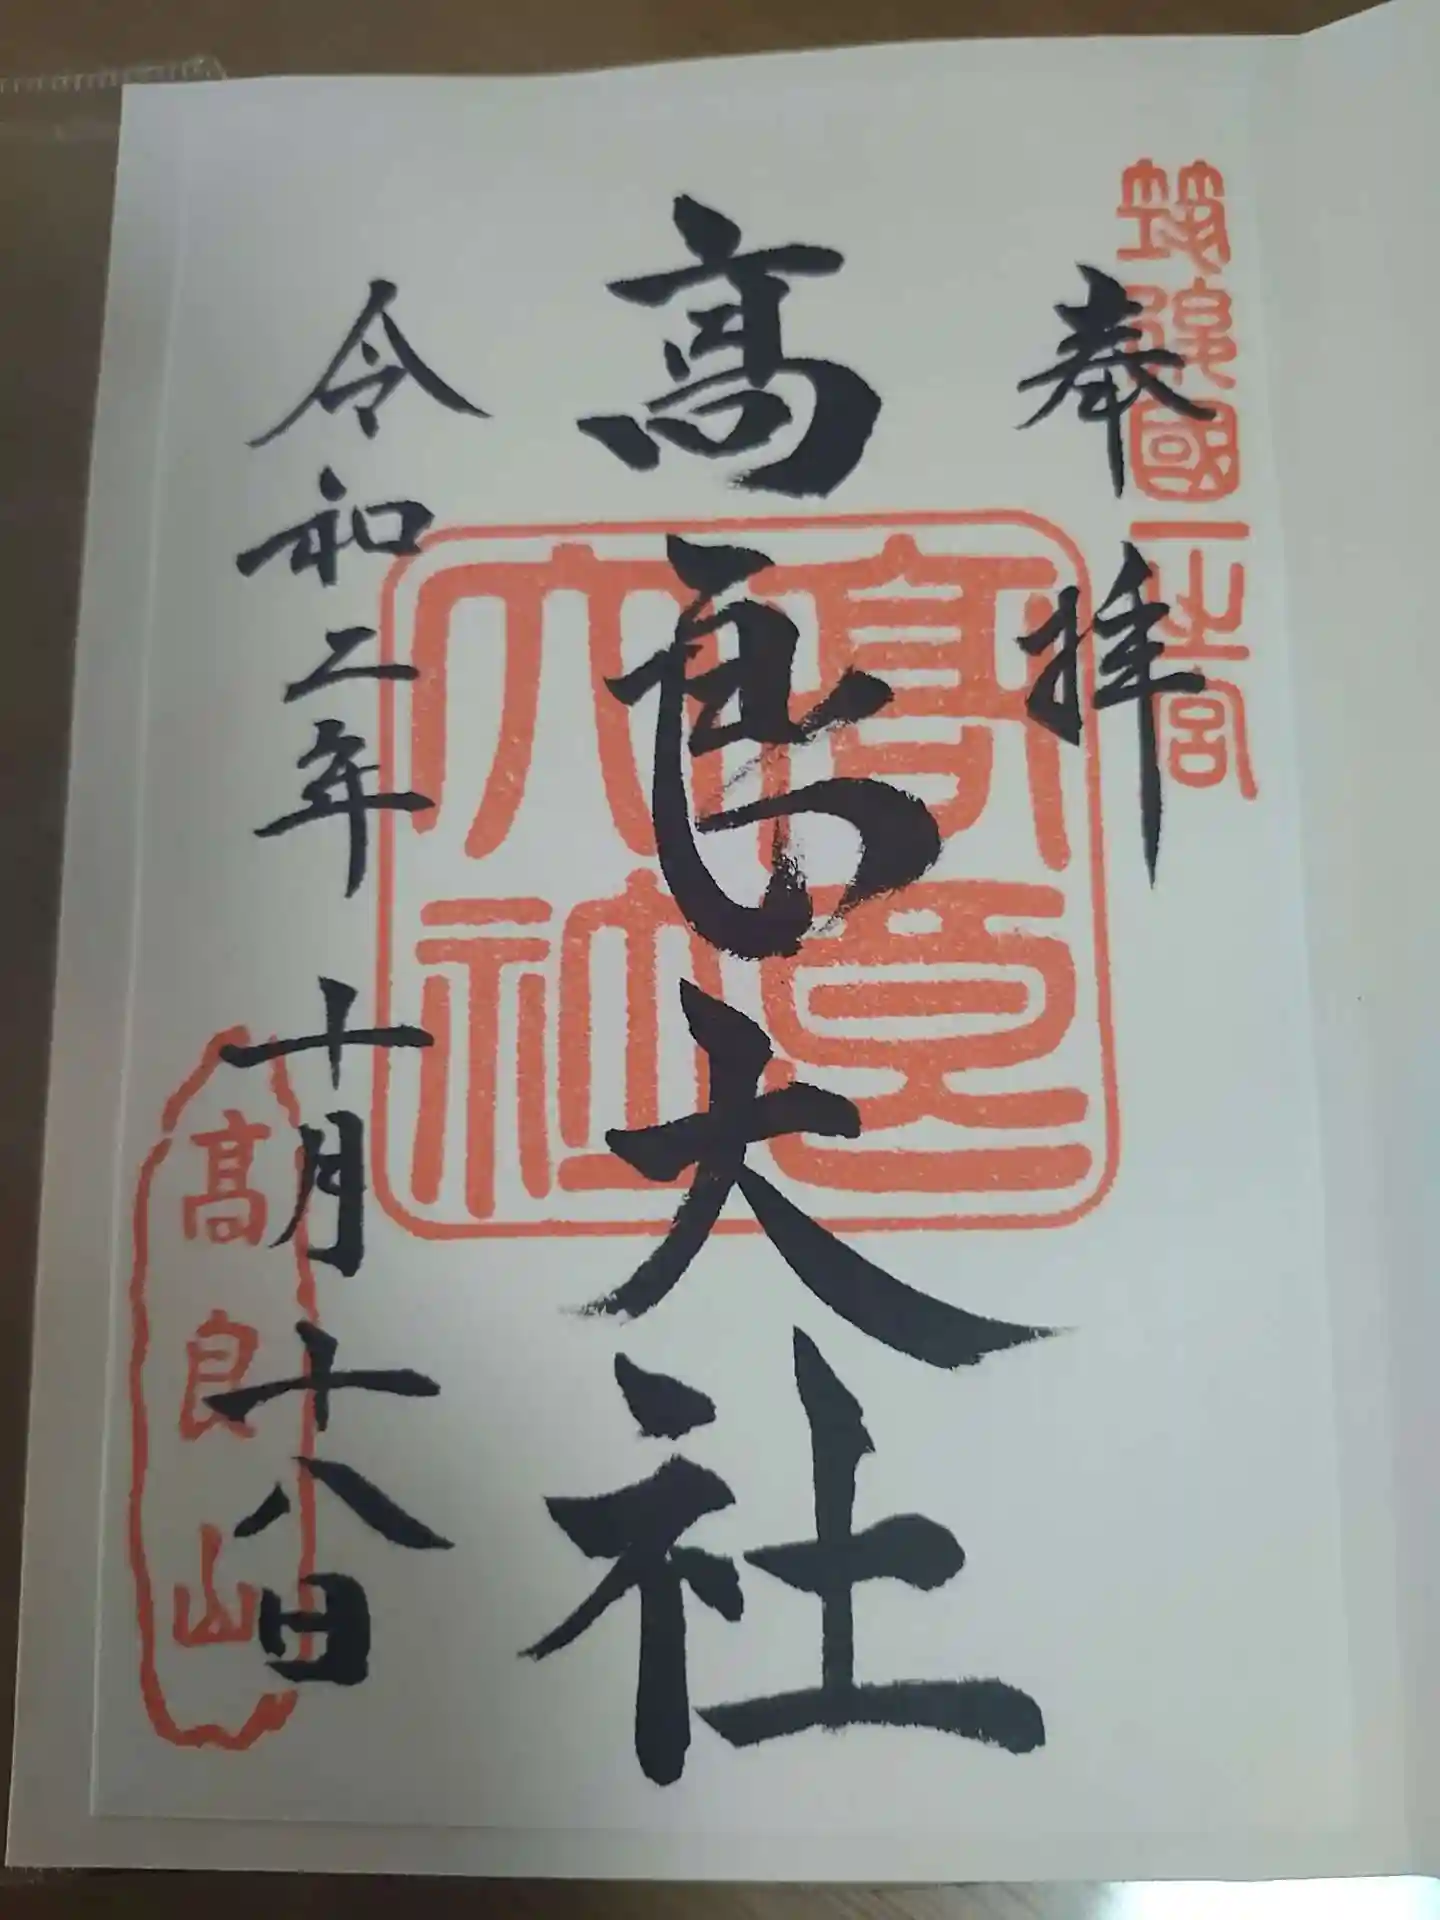 筑後國一之宮
奉拝
髙良大社
高良大社
令和二年十月十八日
高良山